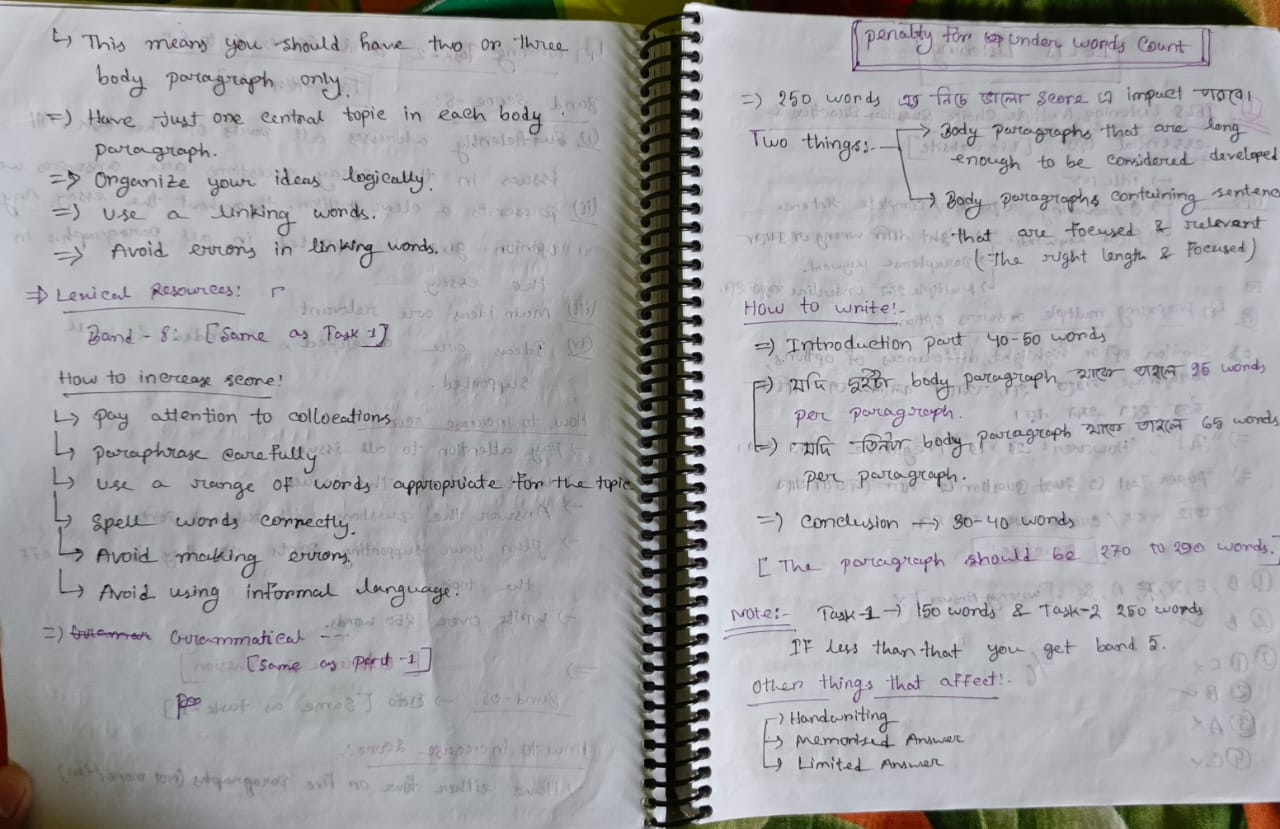 ↳ This means you should have two or three
body paragraph only.
=> Have just one central topic in each body
paragraph.
=> Organize your ideas logically.
=> Use a linking words.
=> Avoid errors in linking words.
=> Lexical Resources:
Band - 8: [Same as Task 1]
How to increase score:
↳ Pay attention to collocations
↳ Paraphrase carefully
↳ Use a range of words appropriate for the topic
↳ Spell words correctly.
↳ Avoid making errors.
↳ Avoid using informal language.
=> Grammatical ---
[Same as part -1]
Penalty for under words count
=> 250 words এর নিচে ভালো score এ impact পরবে।
Two things:- → Body paragraphs that are long
enough to be considered developed
→ Body paragraphs containing sentenc
that are focused & relevant
(The right length & Focused)
How to write:-
=> Introduction part 40-50 words
=> যদি দুইটা body paragraph থাকে তাহলে 95 words
per paragraph.
=> যদি তিনটা body paragraph থাকে তাহলে 65 words
per paragraph.
=> Conclusion → 30-40 words
[The paragraph should be 270 to 290 words.]
Note:- Task-1 → 150 words & Task-2 250 words
If less than that you get band 5.
Other things that affect:-
→ Handwriting
→ Memorised Answer
→ Limited Answer